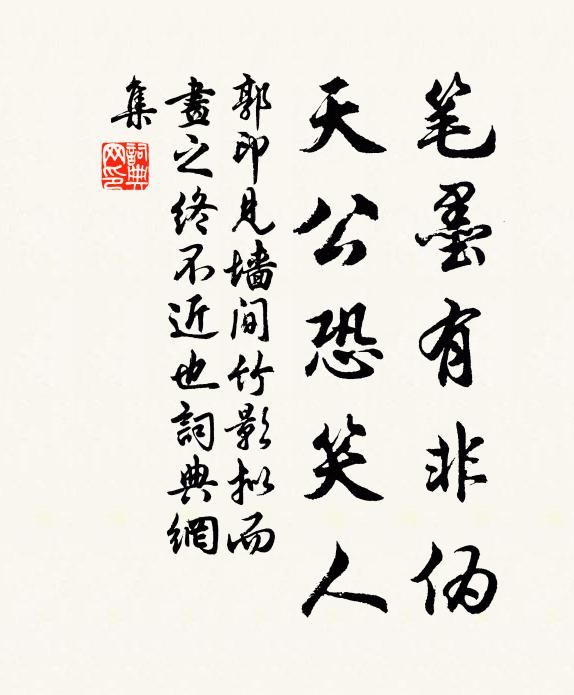 笔墨有非伪
天公恐笑人
郭印见墙间竹影拟而
画之终不近也詞典網
集
詞典网印